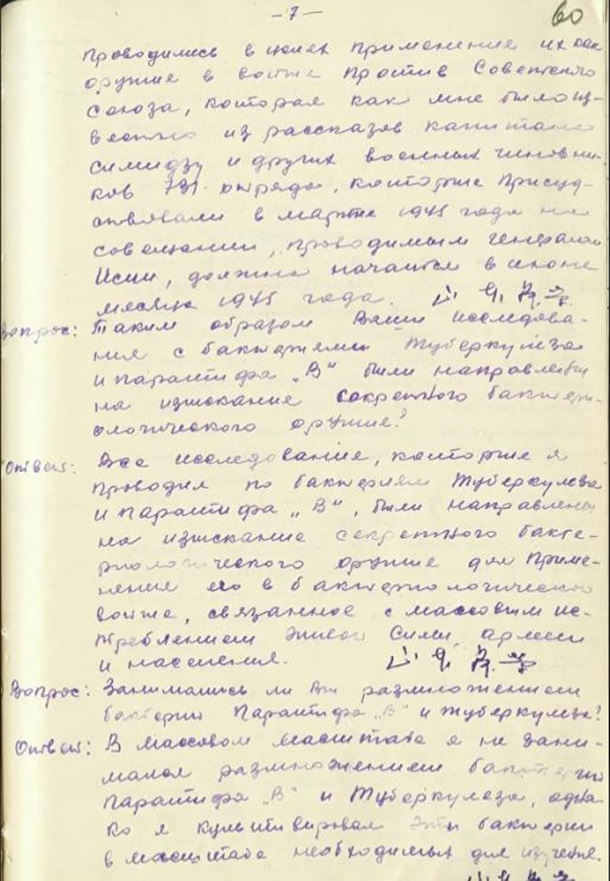 -7-
60
проводились в целях применение их как
оружие в войне против Советского
Союза, которая как мне было из-
вестно из рассказов капитана
Симидзу и других военных чиновни-
ков 731 отряда, которые присуд-
ствовали в марте 1945 года на
совещании, проводимым генералом
Исии, должна начаться в июне
месяце 1945 года.
Вопрос: Таким образом Ваши исследова-
ния с бактериями Туберкулеза
и паратифа „В" были направлены
на изыскание секретного бактери-
ологического оружие?
Ответ: Все исследование, которые я
проводил по бактериям Туберкулеза
и паратифа „В", были направлены
на изыскание секретного бакте-
риологического оружие для приме-
нения его в бактериологической
войне, связанное с массовым ис-
треблением живой силы, армии
и населения.
Вопрос: Занимались ли Вы размножением
бактерий Паратифа „В" и Туберкулеза?
Ответ: В массовом масштабе я не зани-
мался размножением бактерий
Паратифа „В" и Туберкулеза, одна-
ко я культивировал эти бактерии
в масштабе необходимых для изучения.